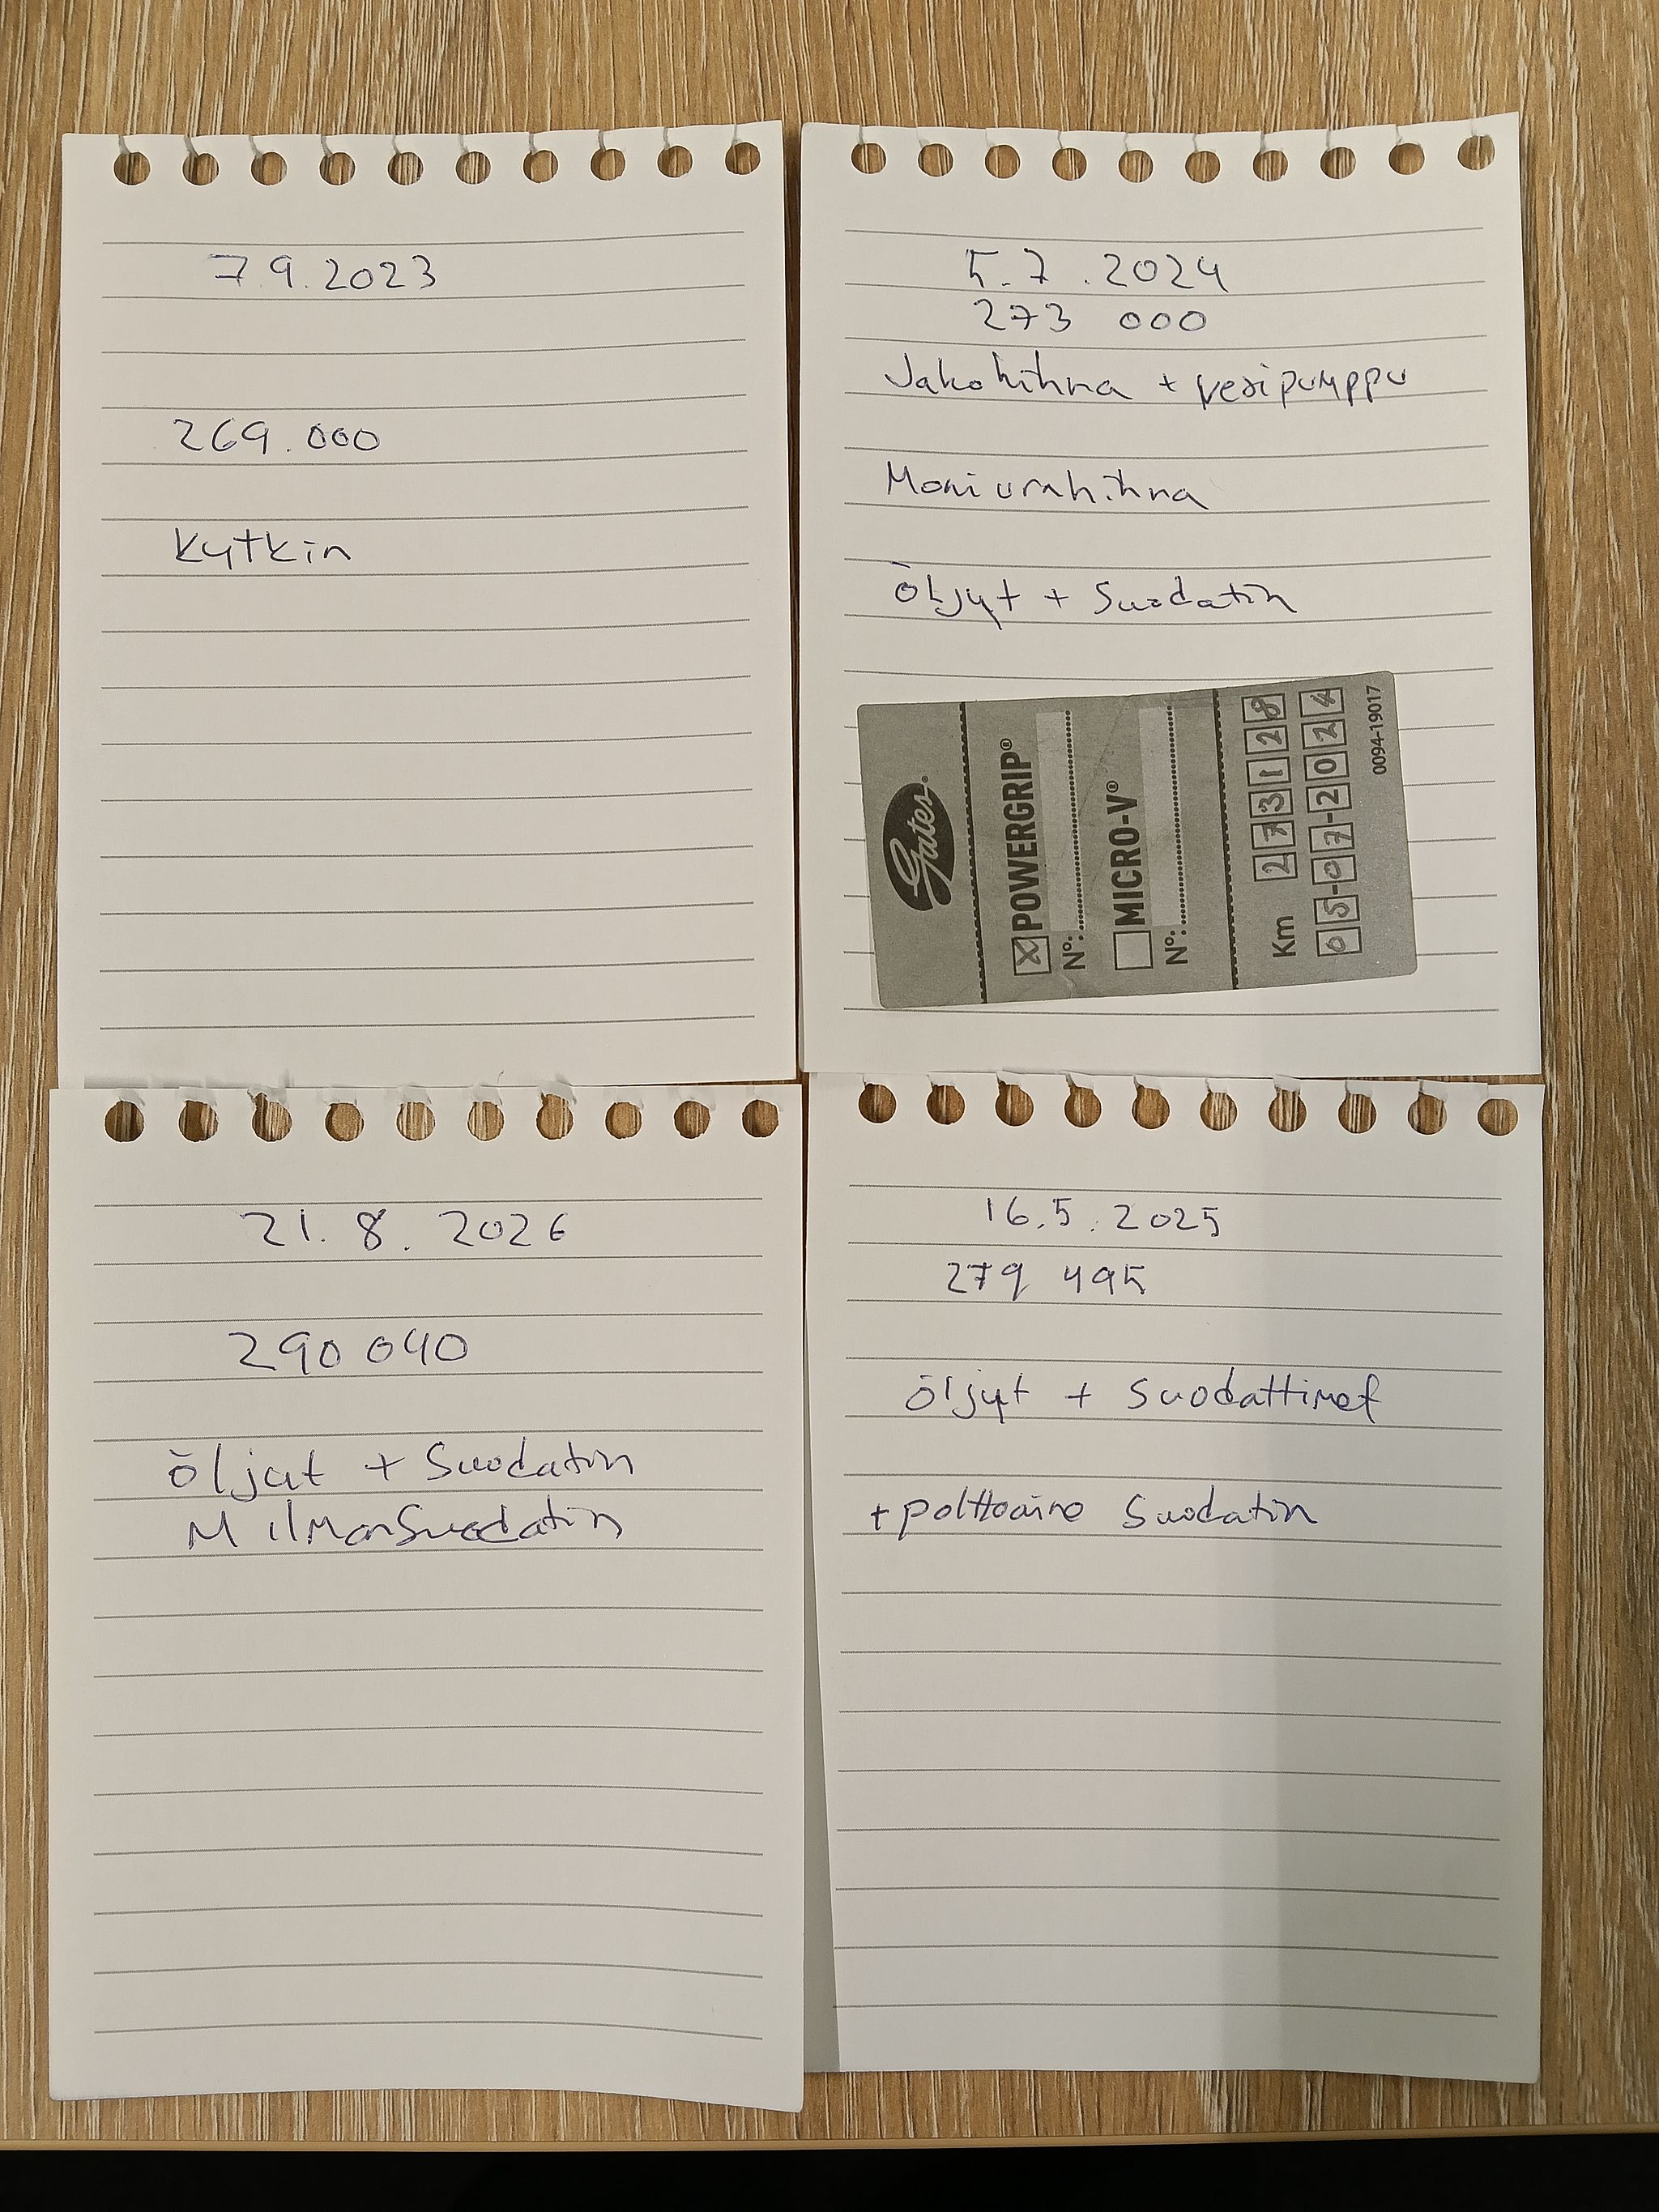 7.9.2023
269.000
Kytkin
5.7.2024
273 000
Jakohihna + vesipumppu
Moniurahihna
Öljyt + Suodatin
Gates®
POWERGRIP®
N°:
MICRO-V®
N°:
Km 273128
05-07-2024
0094-19017
21.8.2026
290 040
öljyt + Suodatin
M ilmanSuodatin
16.5.2025
279 495
öljyt + Suodattimet
+ polttoaine Suodatin